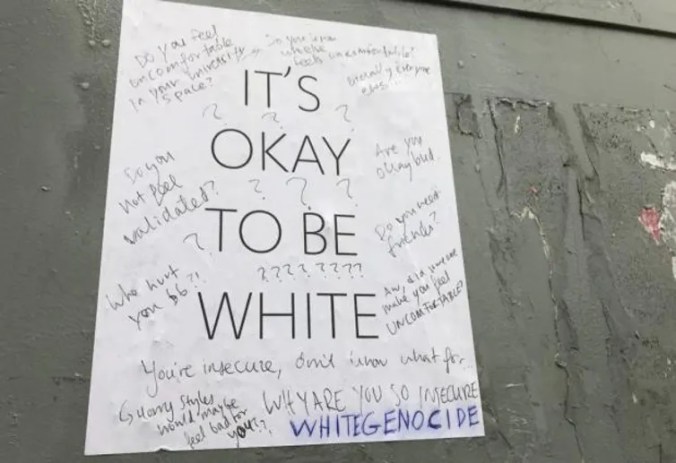 Do you feel
uncomfortable
in your university
space?
Do you know
feels uncomfortable?
everyone
IT'S
? ? ?
OKAY
? ? ?
TO BE
???? ????
WHITE
Are you
okay bud
Do you not feel
validated?
Do you need
friends?
Who hurt
you bb?!
Aw, did someone
make you feel
UNCOMFORTABLE?
You're insecure, don't know what for..
styles
would maybe
feel bad for
you??
WHY ARE YOU SO INSECURE
WHITEGENOCIDE